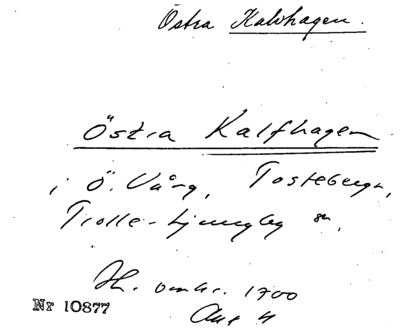 Östra Kalvhagen.
Östra Kalfhagen
i Ö. Vång, Tosteberga,
Trolle-Ljungby sn.
Sk. omkr. 1700
Nr 10877